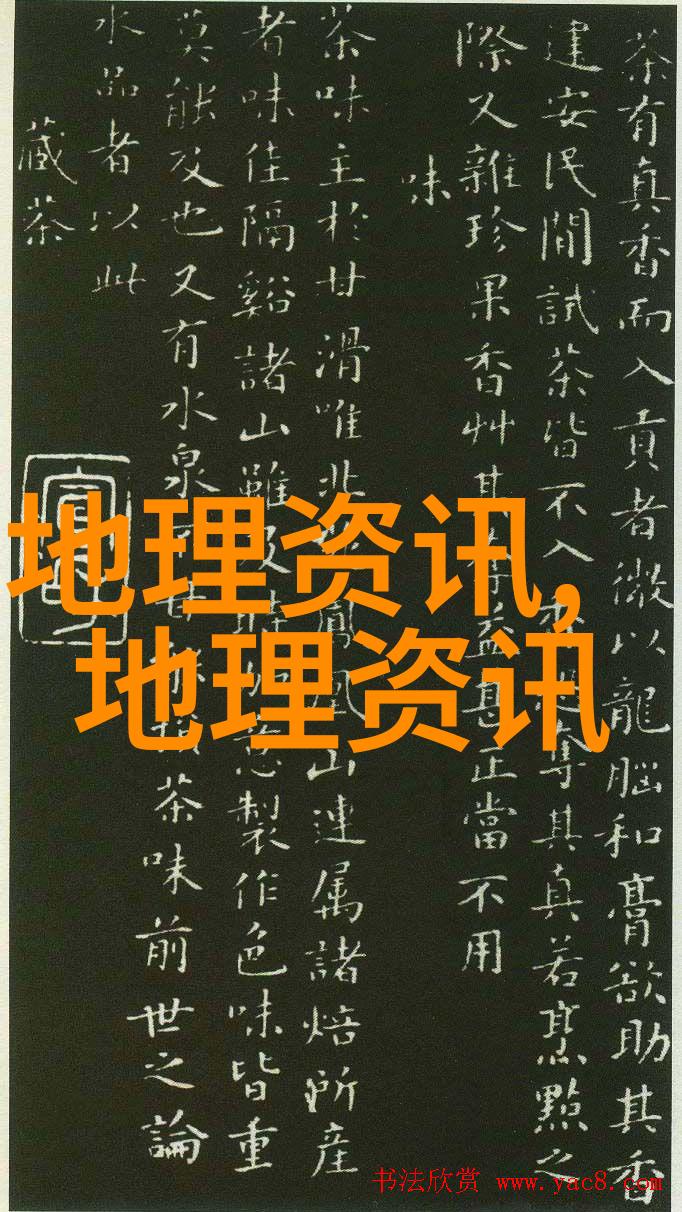 茶有真香而入貢者微以龍腦和膏欲助其香
建安民間試茶皆不入奪其真若烹點之
際又雜珍果香艸其益甚正當不用
味
茶味主於甘滑唯北鳳凰山連属諸焙所產
者味佳隔谿諸山雖及意製作色味皆重
莫能及也又有水泉甘損茶味前世之論
水品者以此
藏茶
地理资讯,
地理资讯
书法欣赏 www.yac8.com